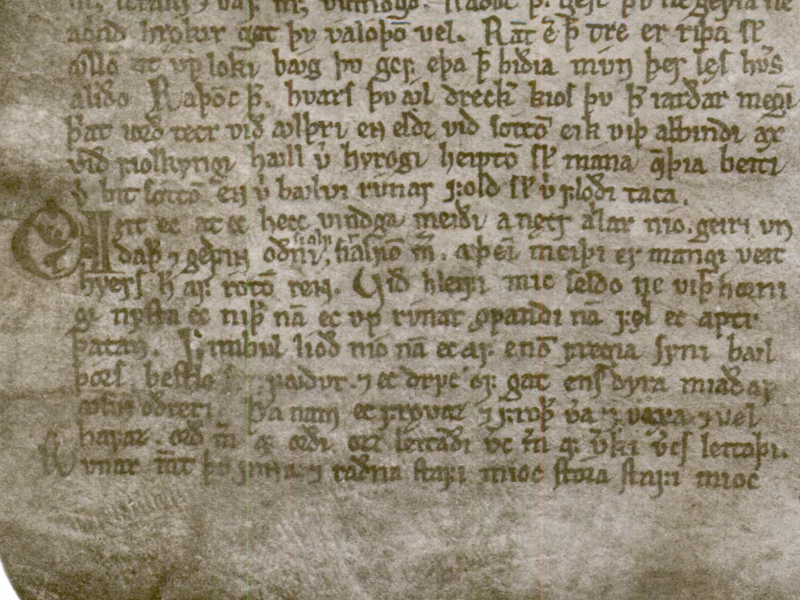 þ. gest þu ne geyia ne
hrøkir get þv valoþō vel. Rāt ē þ tre er riþa sĸl
ollō at vp loki baug þv gef. eþa þ biðia mvn þer les hv̄s
a liðo Raþōc þ. hvars þv aul dreckr kios þv þ iarðar megī
þat iorð tecr við aulþri en eldr við sottō eik viþ abbindi ax
við fiolkyngi haull v̍ hyrogi heiptō sĸl mana q̄þia beiti
v̍ bit sottō en v̍ baulvi rúnar fold sĸl v̍ floði taca.
Veit ec at ec hecc vindga meiði a nętr allar nio. geiri vn
daþr ⁊ gefinn oðni, sialfr sialfō m̄. a þeī meiþi er mangi veit
hvers h̄ af rotō renn. Við hleifi mic seldo ne viþ horni
gi nysta ec niþr nā ec vp rúnar opandi nā fel ec aptr
þatan. Fimbul lioð nio nā ec af enō fregia syni baul
þors bestlo fauðvr. ⁊ ec drycc of gat ens dyra miaðar
ausin oðreri. Þa nam ec frovaz ⁊ froþr v̄a ⁊ vaxa ⁊ vel
hafaz. orð m̄ af orði orz leitaði vc m̄ af v̄ki v̄cs leitoþi.
Runar m̄t þv finna ⁊ raðna stafi mioc stora stafi mioc